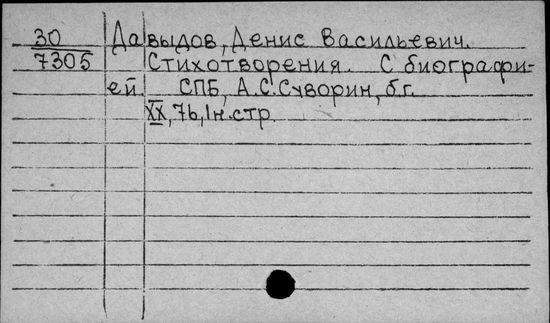 30 Давыдов, Денис Васильевич.
7305 Стихотворения. С биографи-
ей. СПБ, А.С.Суворин, б.г.
XX, 76, 1н.стр.